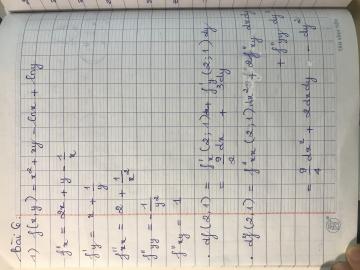 Bài 6:
1) f(x,y) = x² + xy - lnx + lny
f'x = 2x + y - 1/x
f'y = x + 1/y
f''xx = 2 + 1/x²
f''yy = -1/y²
f''xy = 1
. df(2,1) = f'x(2;1)dx + f'y(2;1)dy
= 9/2 dx + 3dy
. df(2,1) = f''xx(2;1)dx² + 2f''xy dxdy
+ f''yy dy²
= 9/4 dx² + 2dxdy - dy²